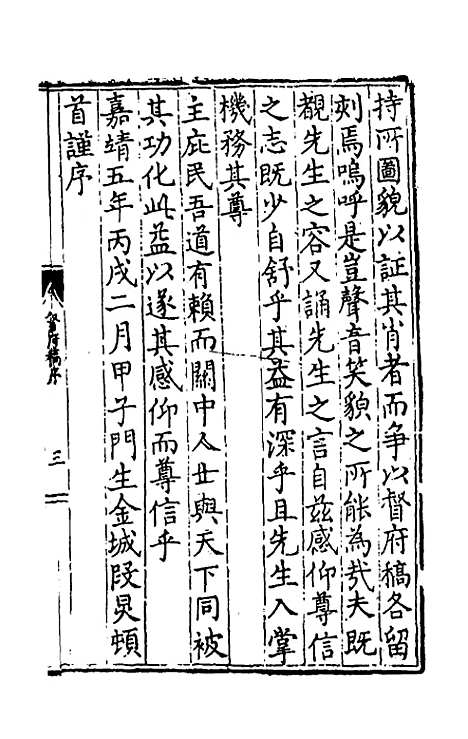 持所圖貌以証其肖者而争以督府稿各留
刻焉嗚呼是豈聲音笑貌之所能為㢤夫既
覩先生之容又誦先生之言自兹感仰尊信
之志既少自舒乎其益有深乎且先生入掌
機務其尊
主庇民吾道有賴而關中人士與天下同被
其功化此益以遂其感仰而尊信乎
嘉靖五年丙戌二月甲子門生金城段炅頓
首謹序
督府稿序
三